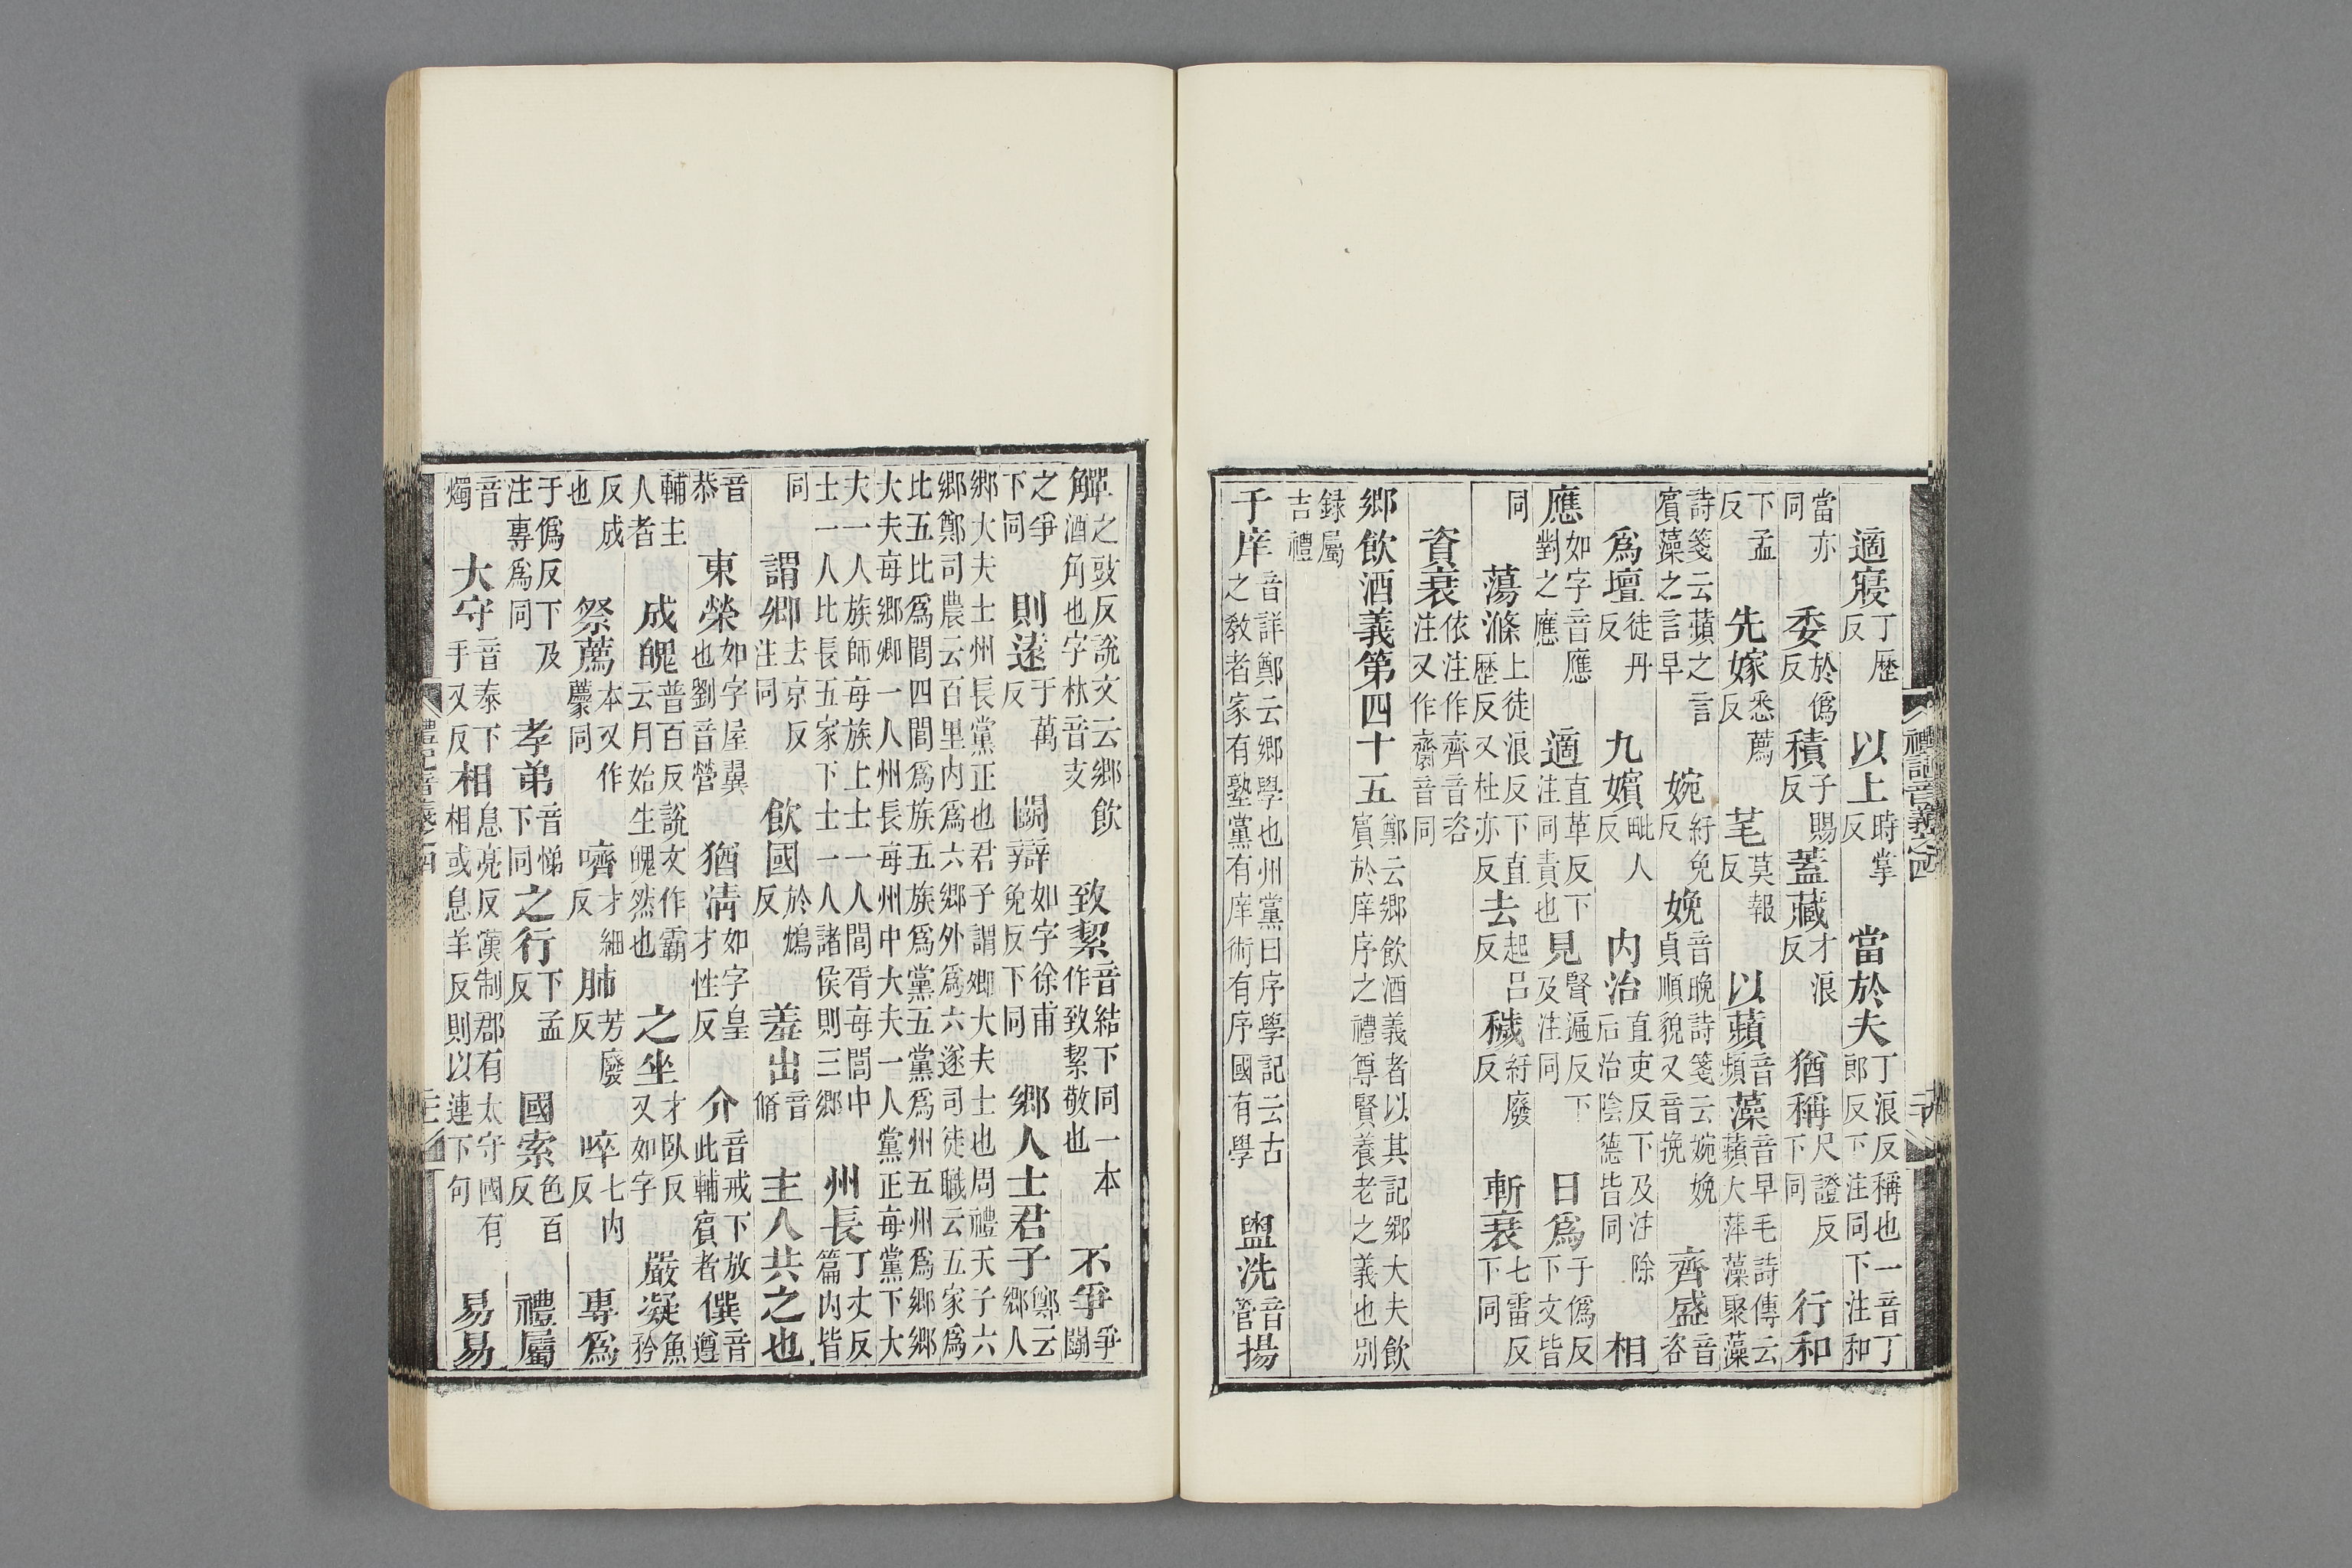 禮記音義之四
適寢丁歷反以上時掌反當於夫丁浪反稱也一音丁郎反下注同下注和
當亦同委於僞反積子賜反蓋藏才浪反猶稱尺證反下同行和
下孟反先嫁悉薦反芼莫報反以蘋音頻藻音早毛詩傳云蘋大蓱藻聚藻
詩箋云蘋之言賓藻之言早婉紆免反娩音晚詩箋云婉娩貞順貌又音挽齊盛音咨
爲壇徒丹反九嬪毗人反内治直吏反下及注除后治陰德皆同相
應如字音應對之應適直革反下注同責也見賢遍反下及注同日爲于僞反下文皆
同蕩滌上徒浪反下直歷反又杜亦反去起呂反穢紆廢反斬衰七雷反下同
資衰依注作齊音咨注又作齋音同
鄉飲酒義第四十五鄭云鄉飲酒義者以其記鄉大夫飲賓於庠序之禮尊賢養老之義也別
録屬吉禮
于庠音詳鄭云鄉學也州黨曰序學記云古之教者家有塾黨有庠術有序國有學盥洗音管揚
觶之豉反說文云鄉飲酒角也字林音支致絜音結下同一本作致絜敬也不爭爭鬭
之爭下同則遠于萬反鬭辯如字徐甫免反下同鄉人士君子鄭云鄉人
鄉大夫士州長黨正也君子謂卿大夫士也周禮天子六鄉鄭司農云百里内爲六鄉外爲六遂司徒職云五家爲
比五比爲閭四閭爲族五族爲黨五黨爲州五州爲鄉鄉大夫每鄉卿一人州長每州中大夫一人黨正每黨下大
夫一人族師每族上士一人閭胥每閭中士一人比長五家下士一人諸侯則三鄉州長丁丈反篇内皆
同謂卿去京反注同飲國於鴆反羞出音脩主人共之也
音恭東榮如字屋翼也劉音營猶清如字皇才性反介音戒下放此輔賓者僎音遵
輔主人者成魄普百反說文作霸云月始生魄然也之坐才臥反又如字嚴凝魚矜
反成也祭薦本又作同嚌才細反肺芳廢反啐七内反專爲
于僞反下及注專爲同孝弟音悌下同之行下孟反國索色百反禮屬
音燭大守音泰下手又反相息亮反漢制郡有太守國有相或息羊反則以連下句易易